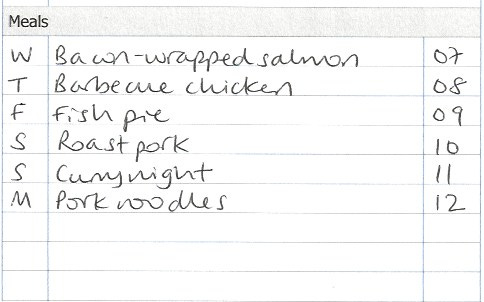 Meals
W Bacon-wrapped salmon 07
T Barbecue chicken 08
F Fish pie 09
S Roast pork 10
S Curry night 11
M Pork noodles 12